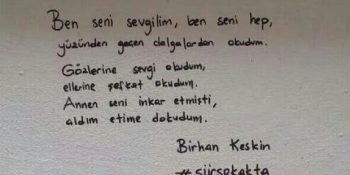 Ben seni sevgilim, ben seni hep,
yüzünden geçen dalgalardan okudum.
Gözlerine sevgi okudum,
ellerine şefkat okudum.
Annen seni inkar etmişti,
aldım etime dokudum.
Birhan Keskin
#siirsokakta